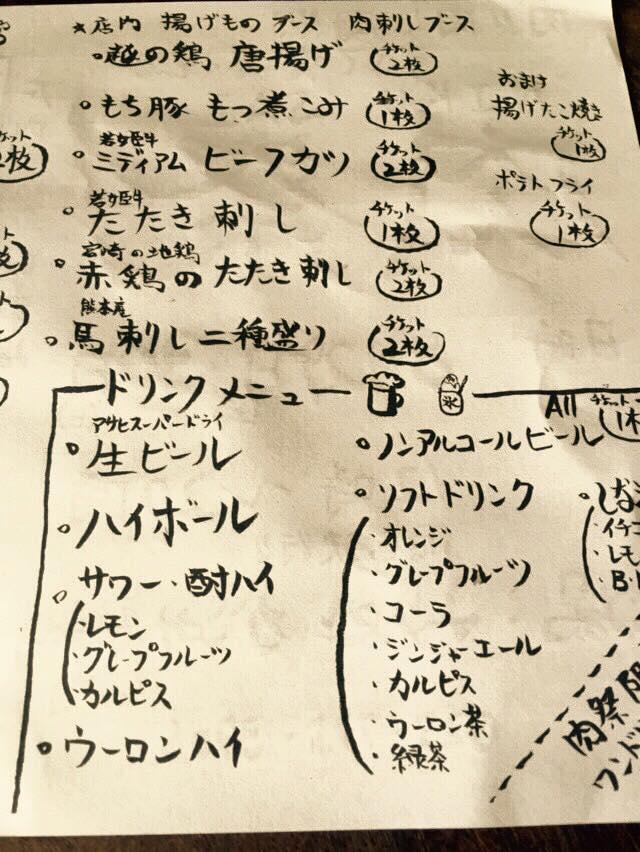 ★店内 揚げもの ブース 肉刺しブース
越の鶏 唐揚げ チケット 2枚
もち豚 もつ煮こみ チケット 1枚
若姫牛
ミディアム ビーフカツ チケット 2枚
若姫牛
たたき刺し チケット 1枚
宮崎の地鶏
赤鶏のたたき刺し チケット 2枚
熊本産
馬刺し二種盛り チケット 2枚
おまけ
揚げたこ焼き
チケット 1枚
ポテトフライ
チケット 1枚
ケット
2枚
ドリンクメニュー 氷 All チケット 1枚
アサヒスーパードライ
生ビール
ハイボール
サワー・酎ハイ
・レモン
・グレープフルーツ
・カルピス
ウーロンハイ
ノンアルコールビール
ソフトドリンク
・オレンジ
・グレープフルーツ
・コーラ
・ジンジャーエール
・カルピス
・ウーロン茶
・緑茶
・イチゴ
・レモ
・B・
肉祭
ワンド